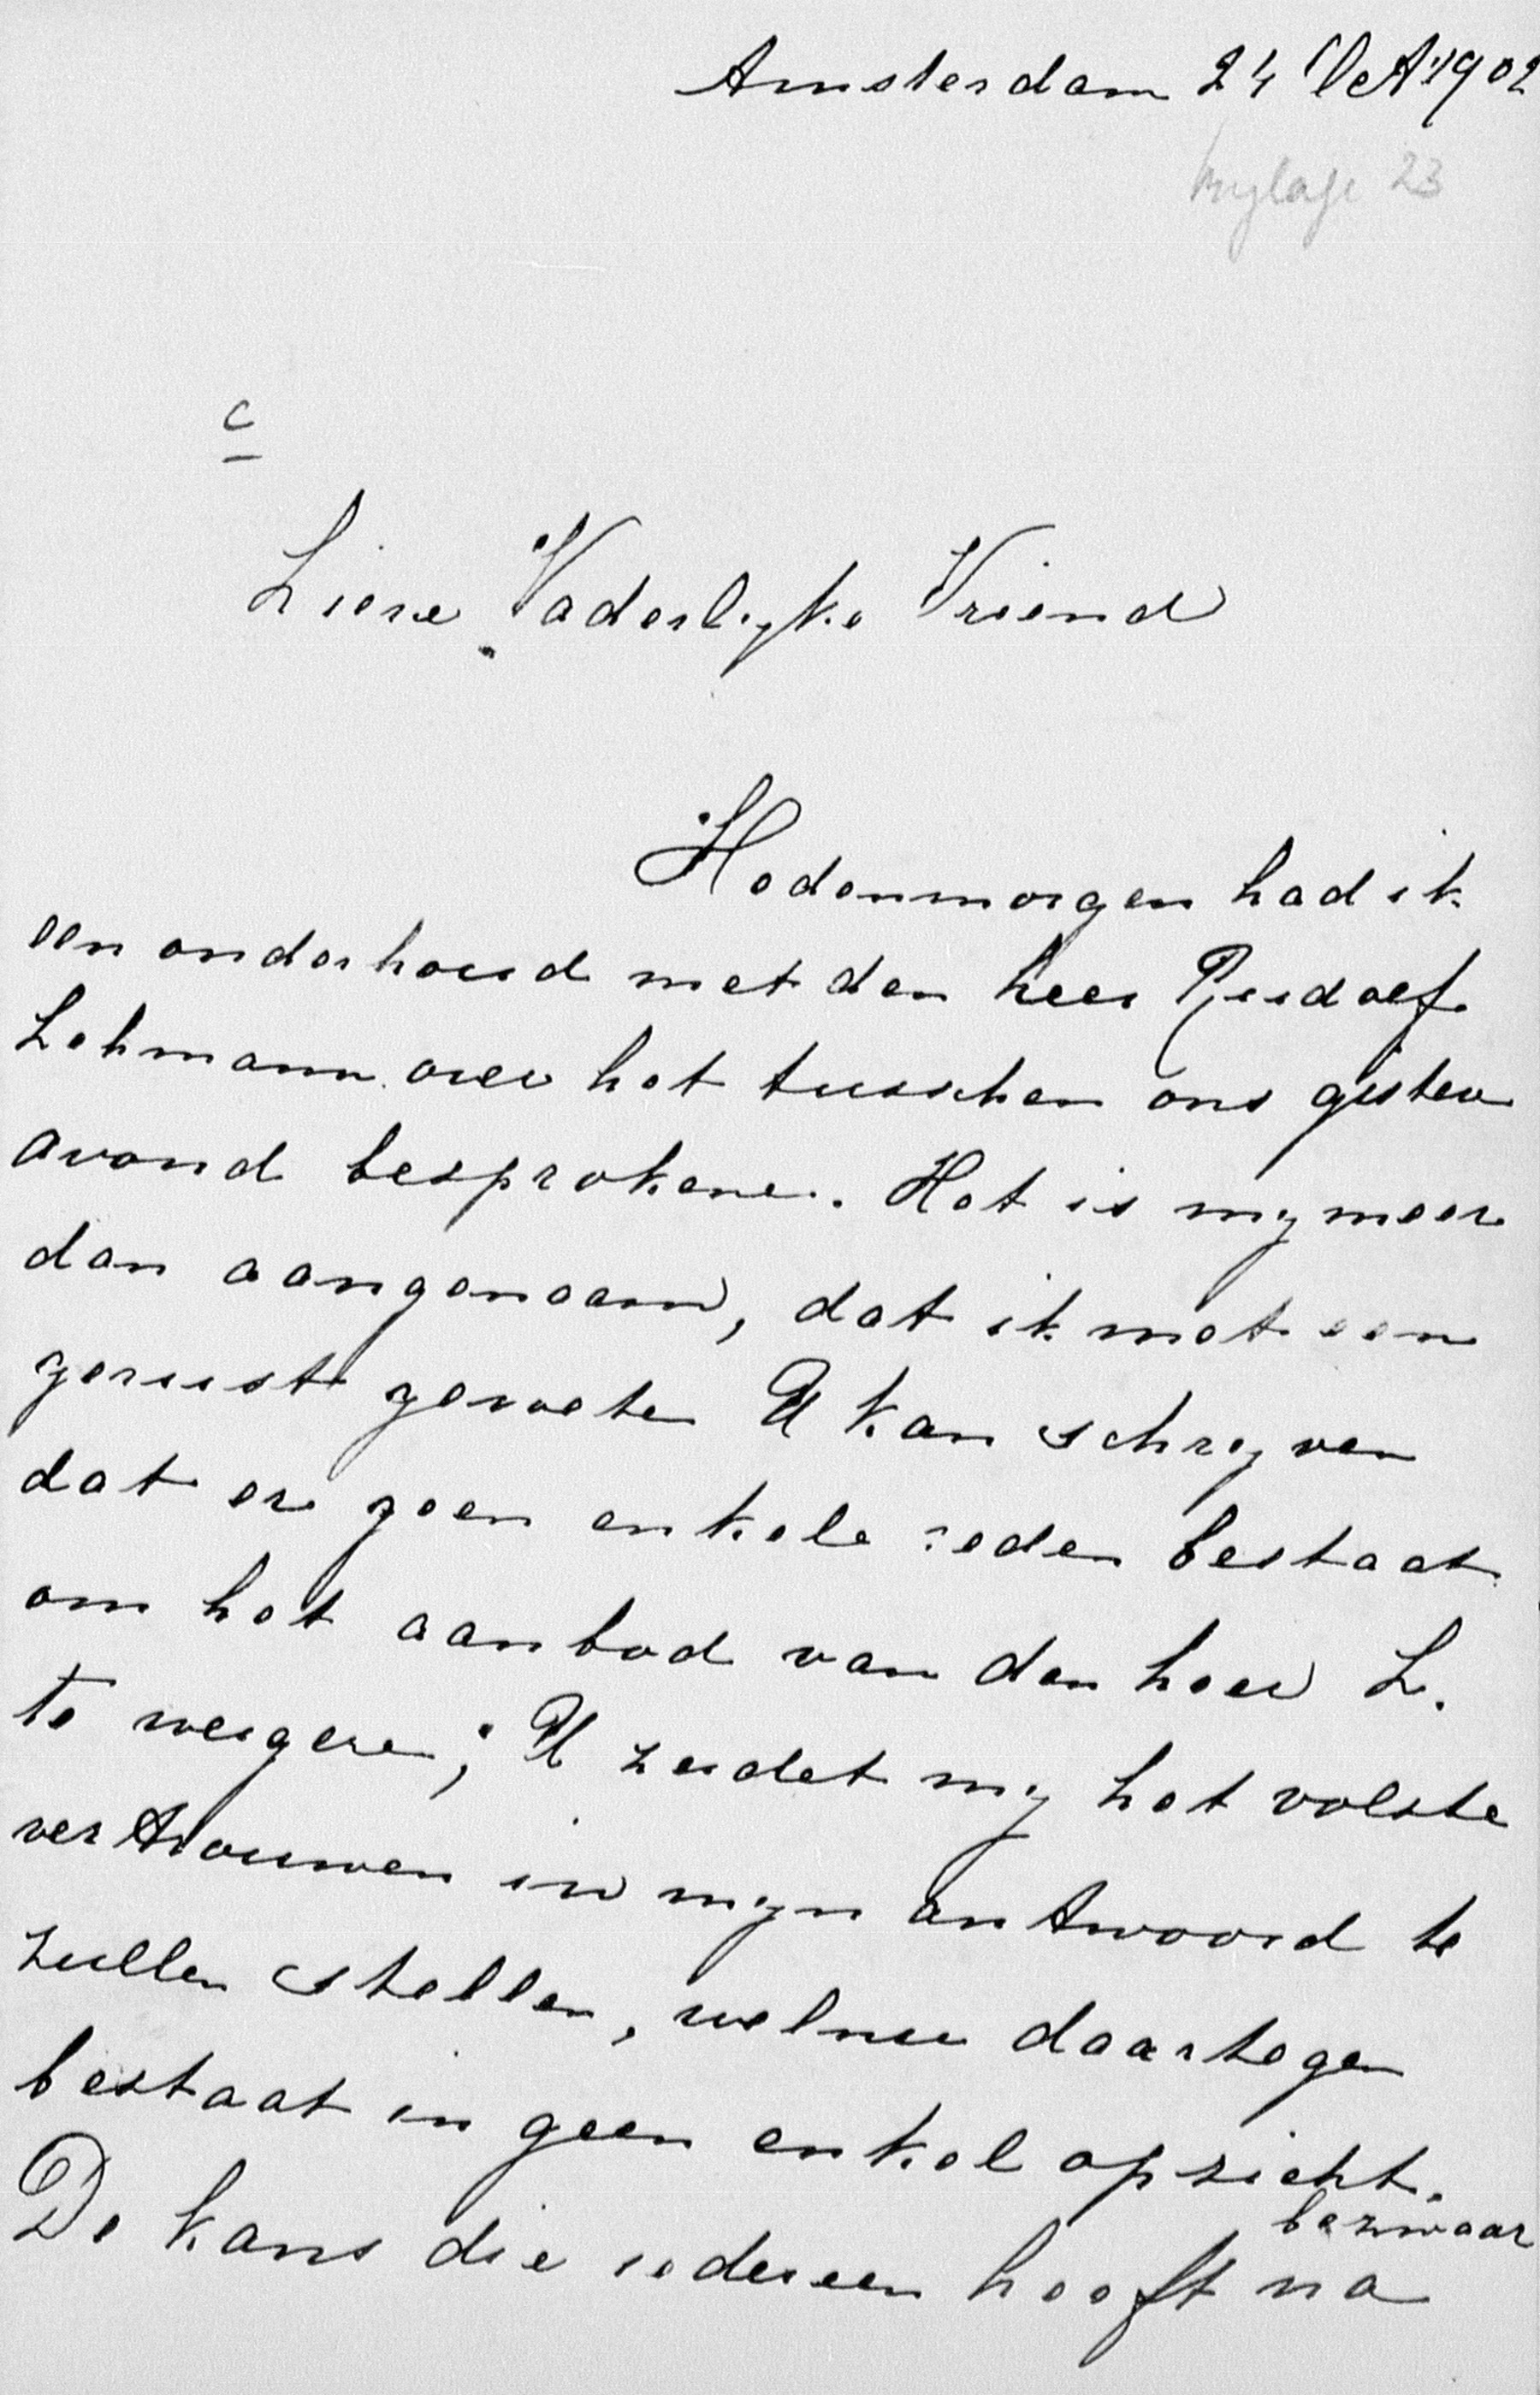 Amsterdam 24 Oct 1902
bijlage 23
c
Lieve Vaderlyke Vriend
Hedenmorgen had ik
een onderhoud met den heer Rudolf
Lehmann over het tusschen ons gister
avond besprokene. Het is my meer
dan aangenaam, dat ik met een
gerust geweten U kan schryven
dat er geen enkele reden bestaat
om het aanbod van den heer L.
te weigeren; U zeidet my het volste
vertrouwen in myn antwoord te
zullen stellen, welnu daartegen
bestaat in geen enkel opzicht.
bezwaar
De kans die iedereen heeft na